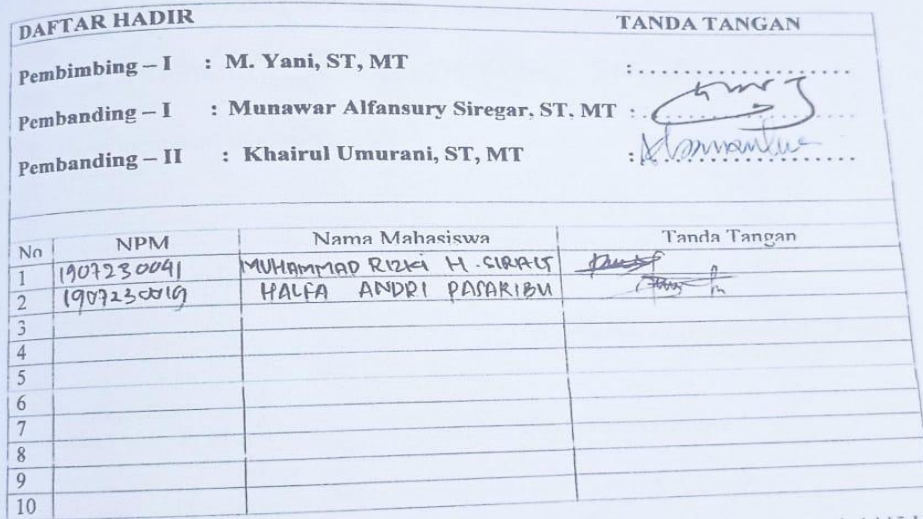 DAFTAR HADIR TANDA TANGAN
Pembimbing – I : M. Yani, ST, MT : ....................
Pembanding – I : Munawar Alfansury Siregar, ST, MT : ....................
Pembanding – II : Khairul Umurani, ST, MT : ....................
No NPM Nama Mahasiswa Tanda Tangan
1 1907230041 MUHAMMAD RIZKI H. SIRAIT
2 1907230019 HALFA ANDRI PASARIBU
3
4
5
6
7
8
9
10